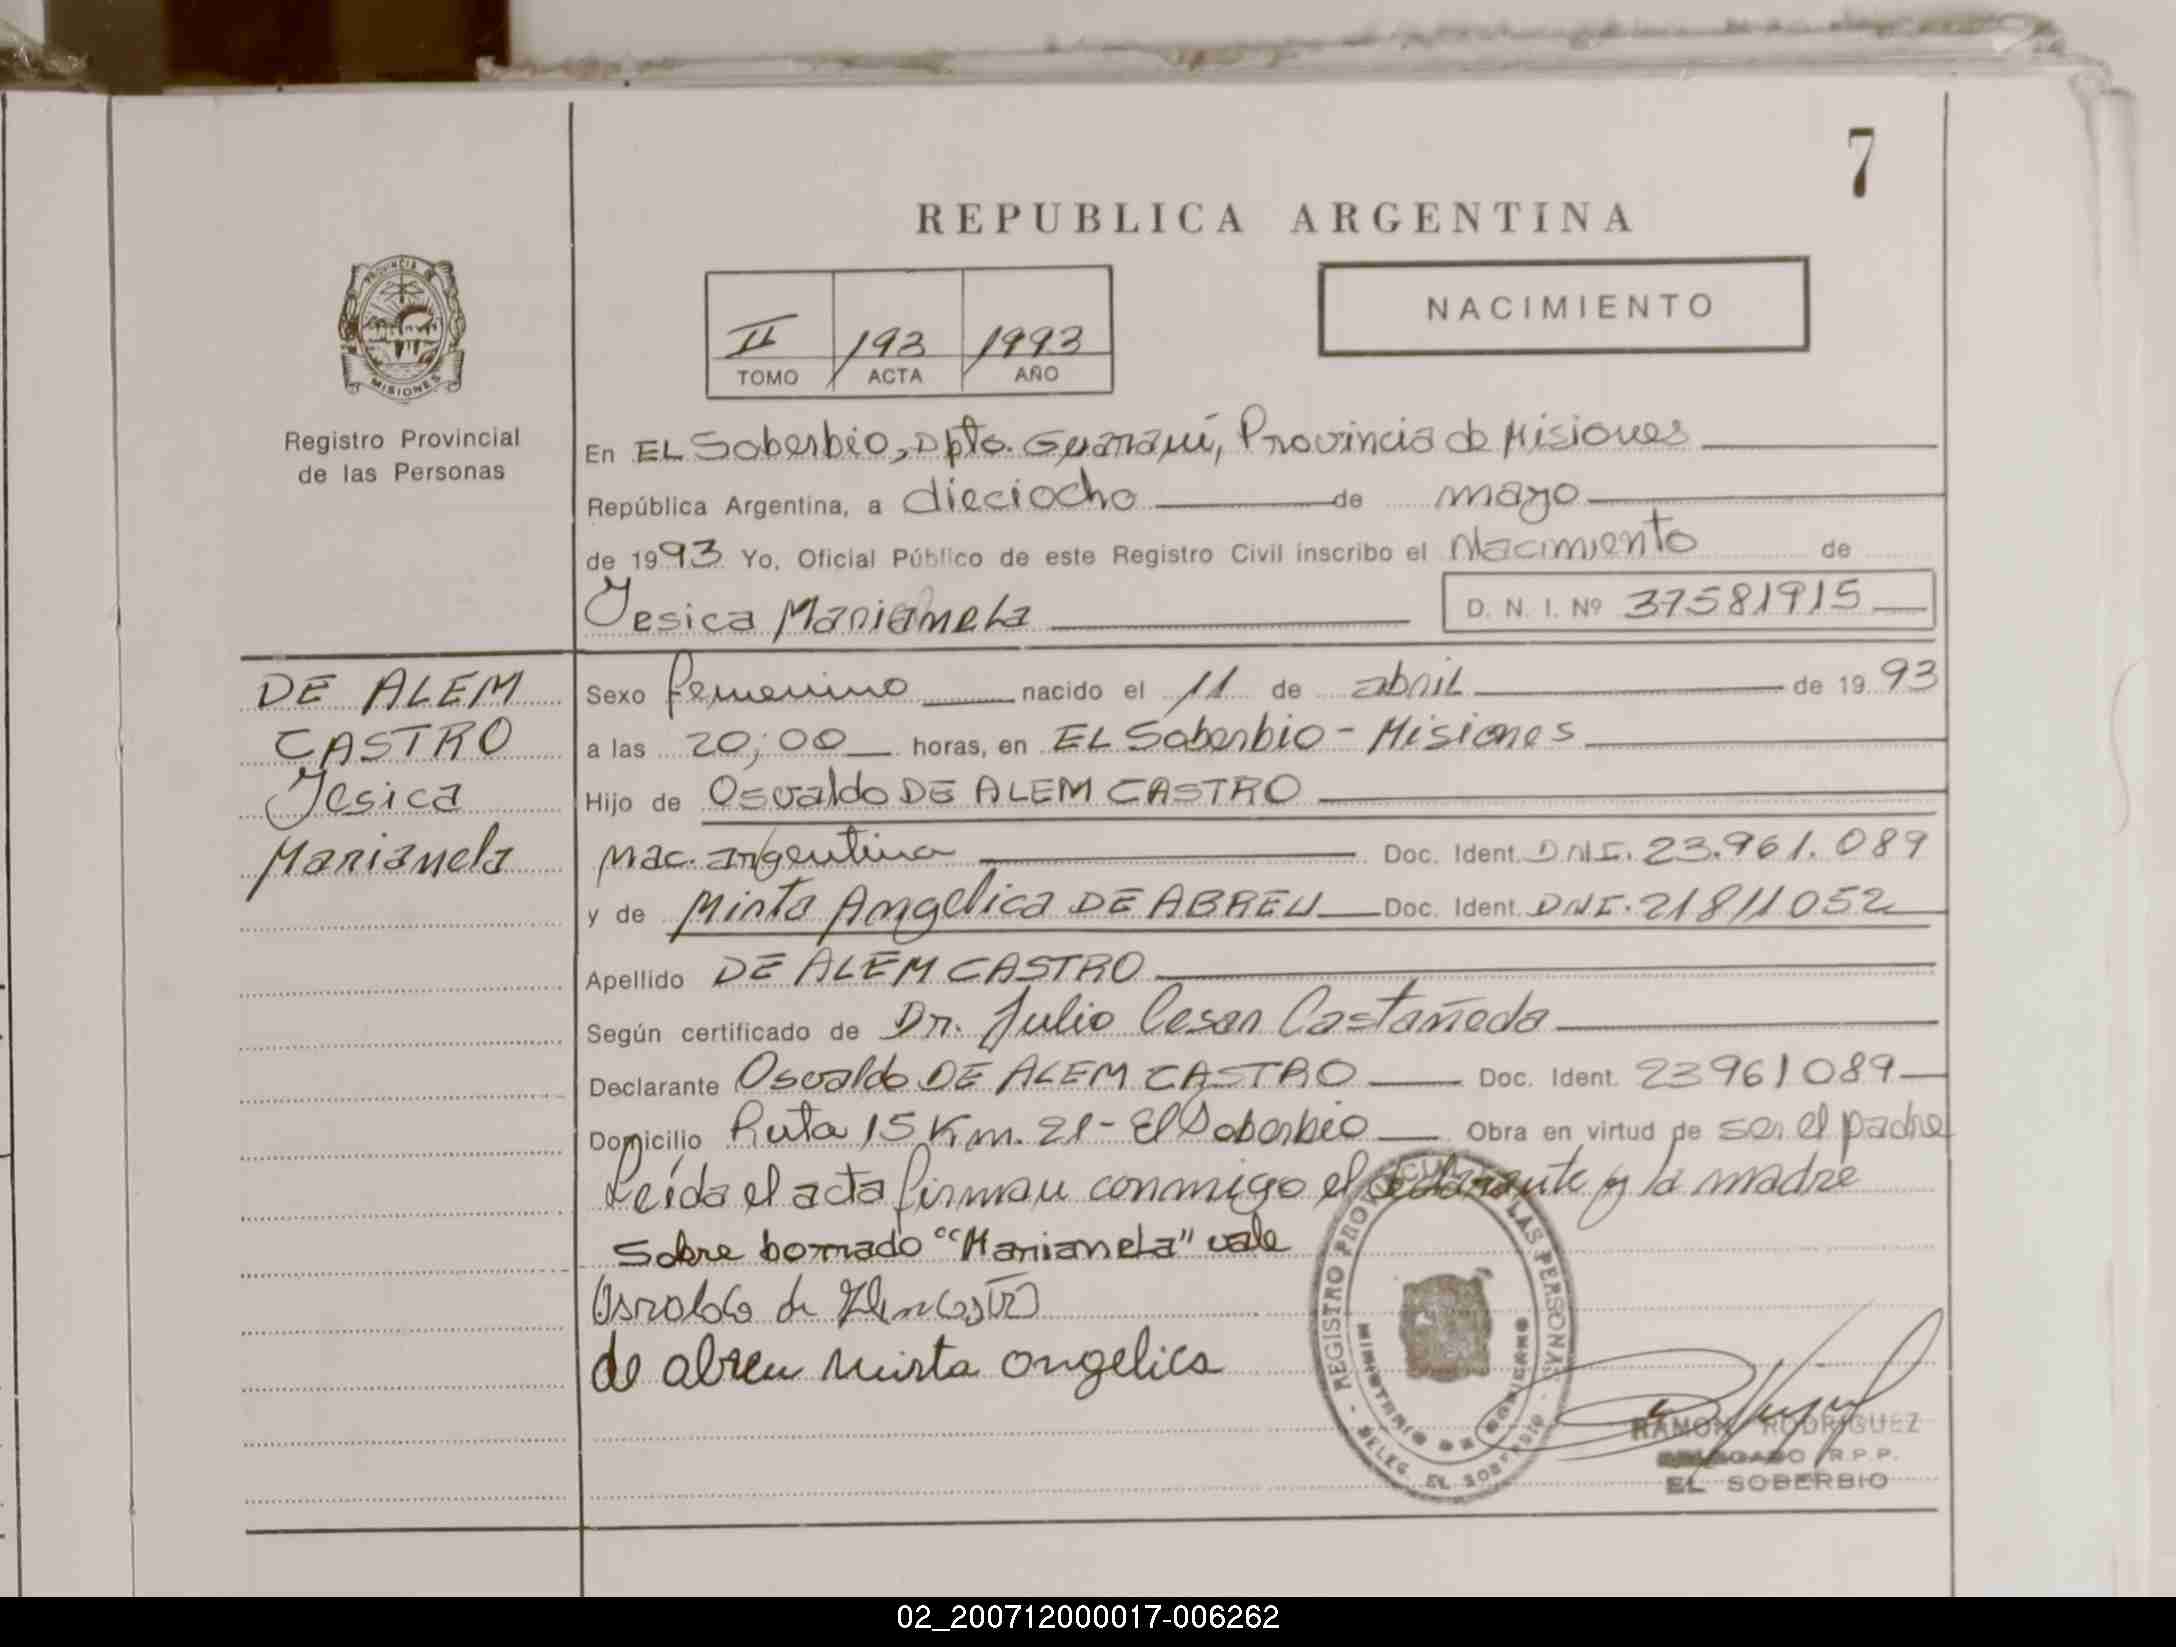 7
REPUBLICA ARGENTINA
PROVINCIA DE
MISIONES
Registro Provincial
de las Personas
II 193 1993
TOMO ACTA AÑO
NACIMIENTO
En EL Soberbio, Dpto. Guaraní, Provincia de Misiones
República Argentina, a dieciocho de mayo
de 1993 Yo, Oficial Público de este Registro Civil inscribo el Nacimiento de
Yesica Marianela D. N. I. Nº 37581915
DE ALEM
CASTRO
Yesica
Marianela
Sexo femenino nacido el 11 de abril de 1993
a las 20;00 horas, en EL Soberbio - Misiones
Hijo de Osvaldo DE ALEM CASTRO
Nac. argentina Doc. Ident. DNI. 23.961.089
y de Mirta Angelica DE ABREU Doc. Ident. DNI. 21811052
Apellido DE ALEM CASTRO
Según certificado de Dr. Julio Cesar Castañeda
Declarante Osvaldo DE ALEM CASTRO Doc. Ident. 23961089
Domicilio Ruta 15 Km. 21 - El Soberbio Obra en virtud de ser el padre
Leída el acta firman conmigo el declarante y la madre
Sobre borrado "Marianela" vale
de abreu mirta angelica
REGISTRO LAS PERSONAS
MINISTERIO DE GOBIERNO
DELEG. EL SOBERBIO
RAMON RODRIGUEZ
DELEGADO R.P.P.
EL SOBERBIO
02_200712000017-006262